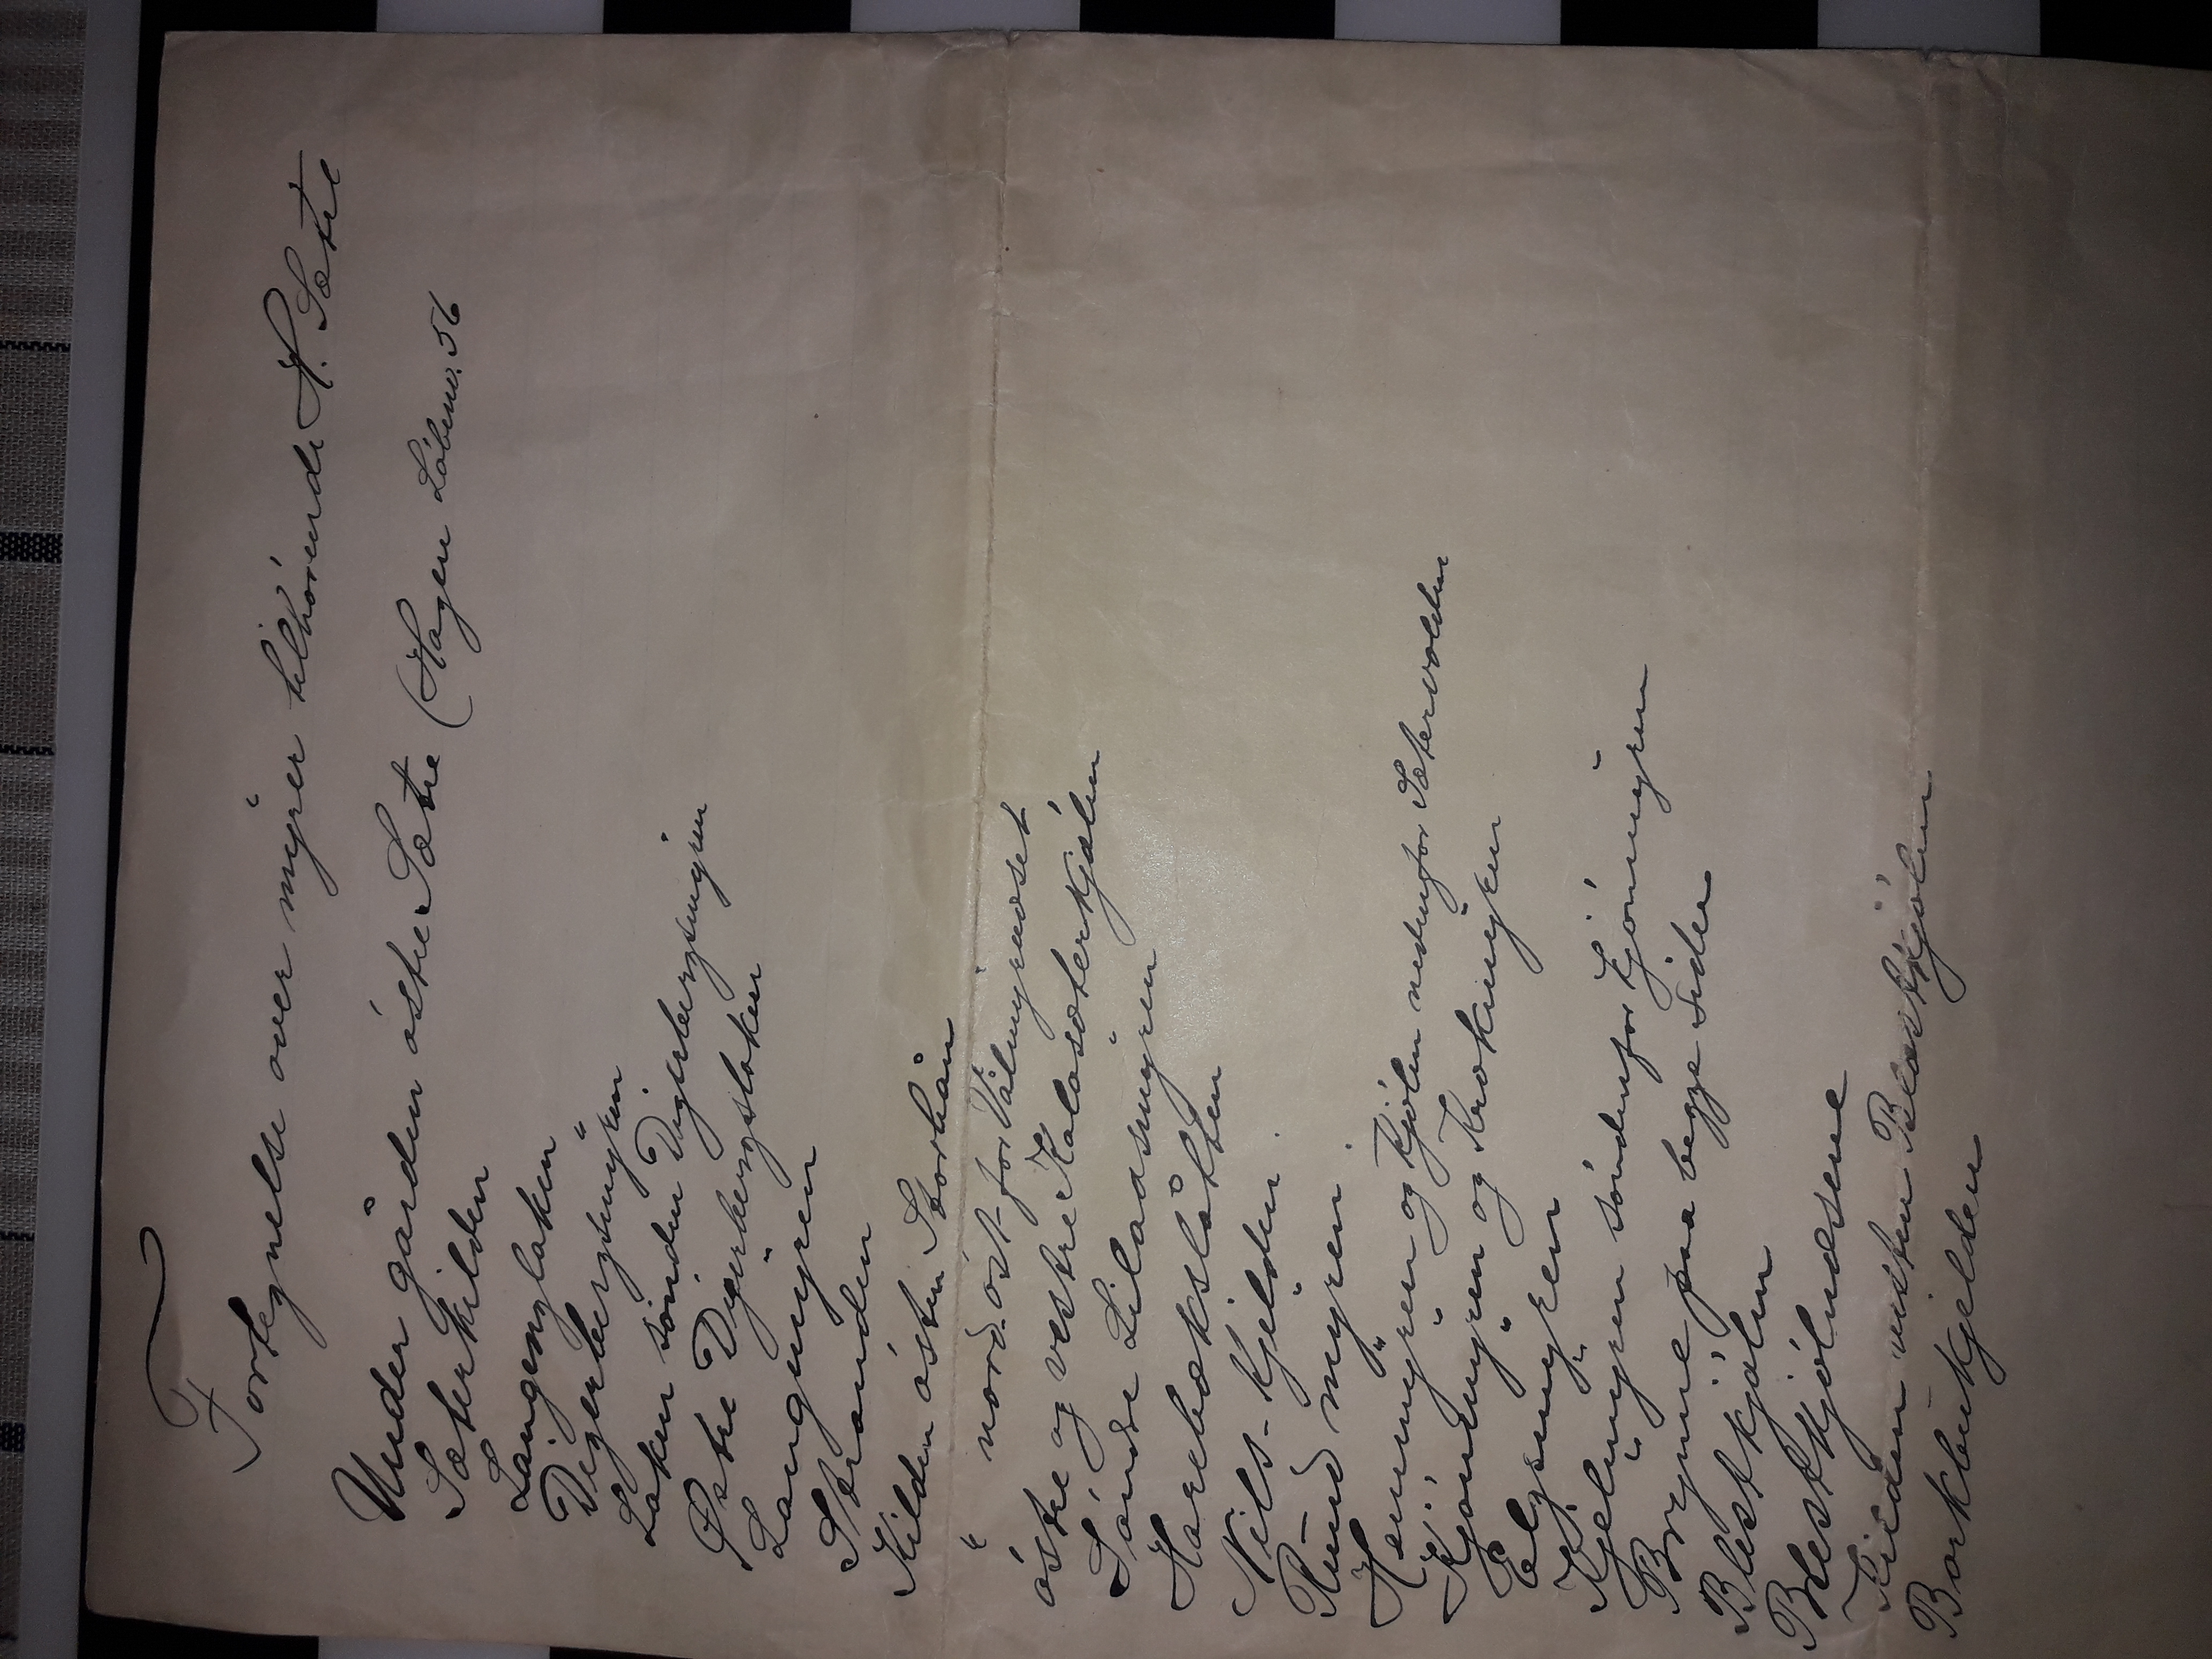 Fortegnelse over myrer tilhörende H. Sætre
Under gården östre Sætre (Hagen Löbenr. 56
Sæterkilden
Langenglaken
Digerbergsmyren
Laken sönden Digerbergsmyren
Østre Digerbergslaken
Langmyren
Stranden
Kilden östen Storhån
" nord-öst-for Vålmyrneset
östre og vestre Kalosæterkjölen
Söndre Lilaasmyren
Harebækslåtten
Nils-Kjelden
Rundmyren
Henmyren og Kjölen nedenfor Sætervolden
Kjönmyren og Krokmyren
Elgsmyren
Kjelmyren söndenfor Kjönmyren
Brynie paa begge sider
Blestkjölen
Blestkjölnesene
vesten Blestkjölen
Borkbenkjelden